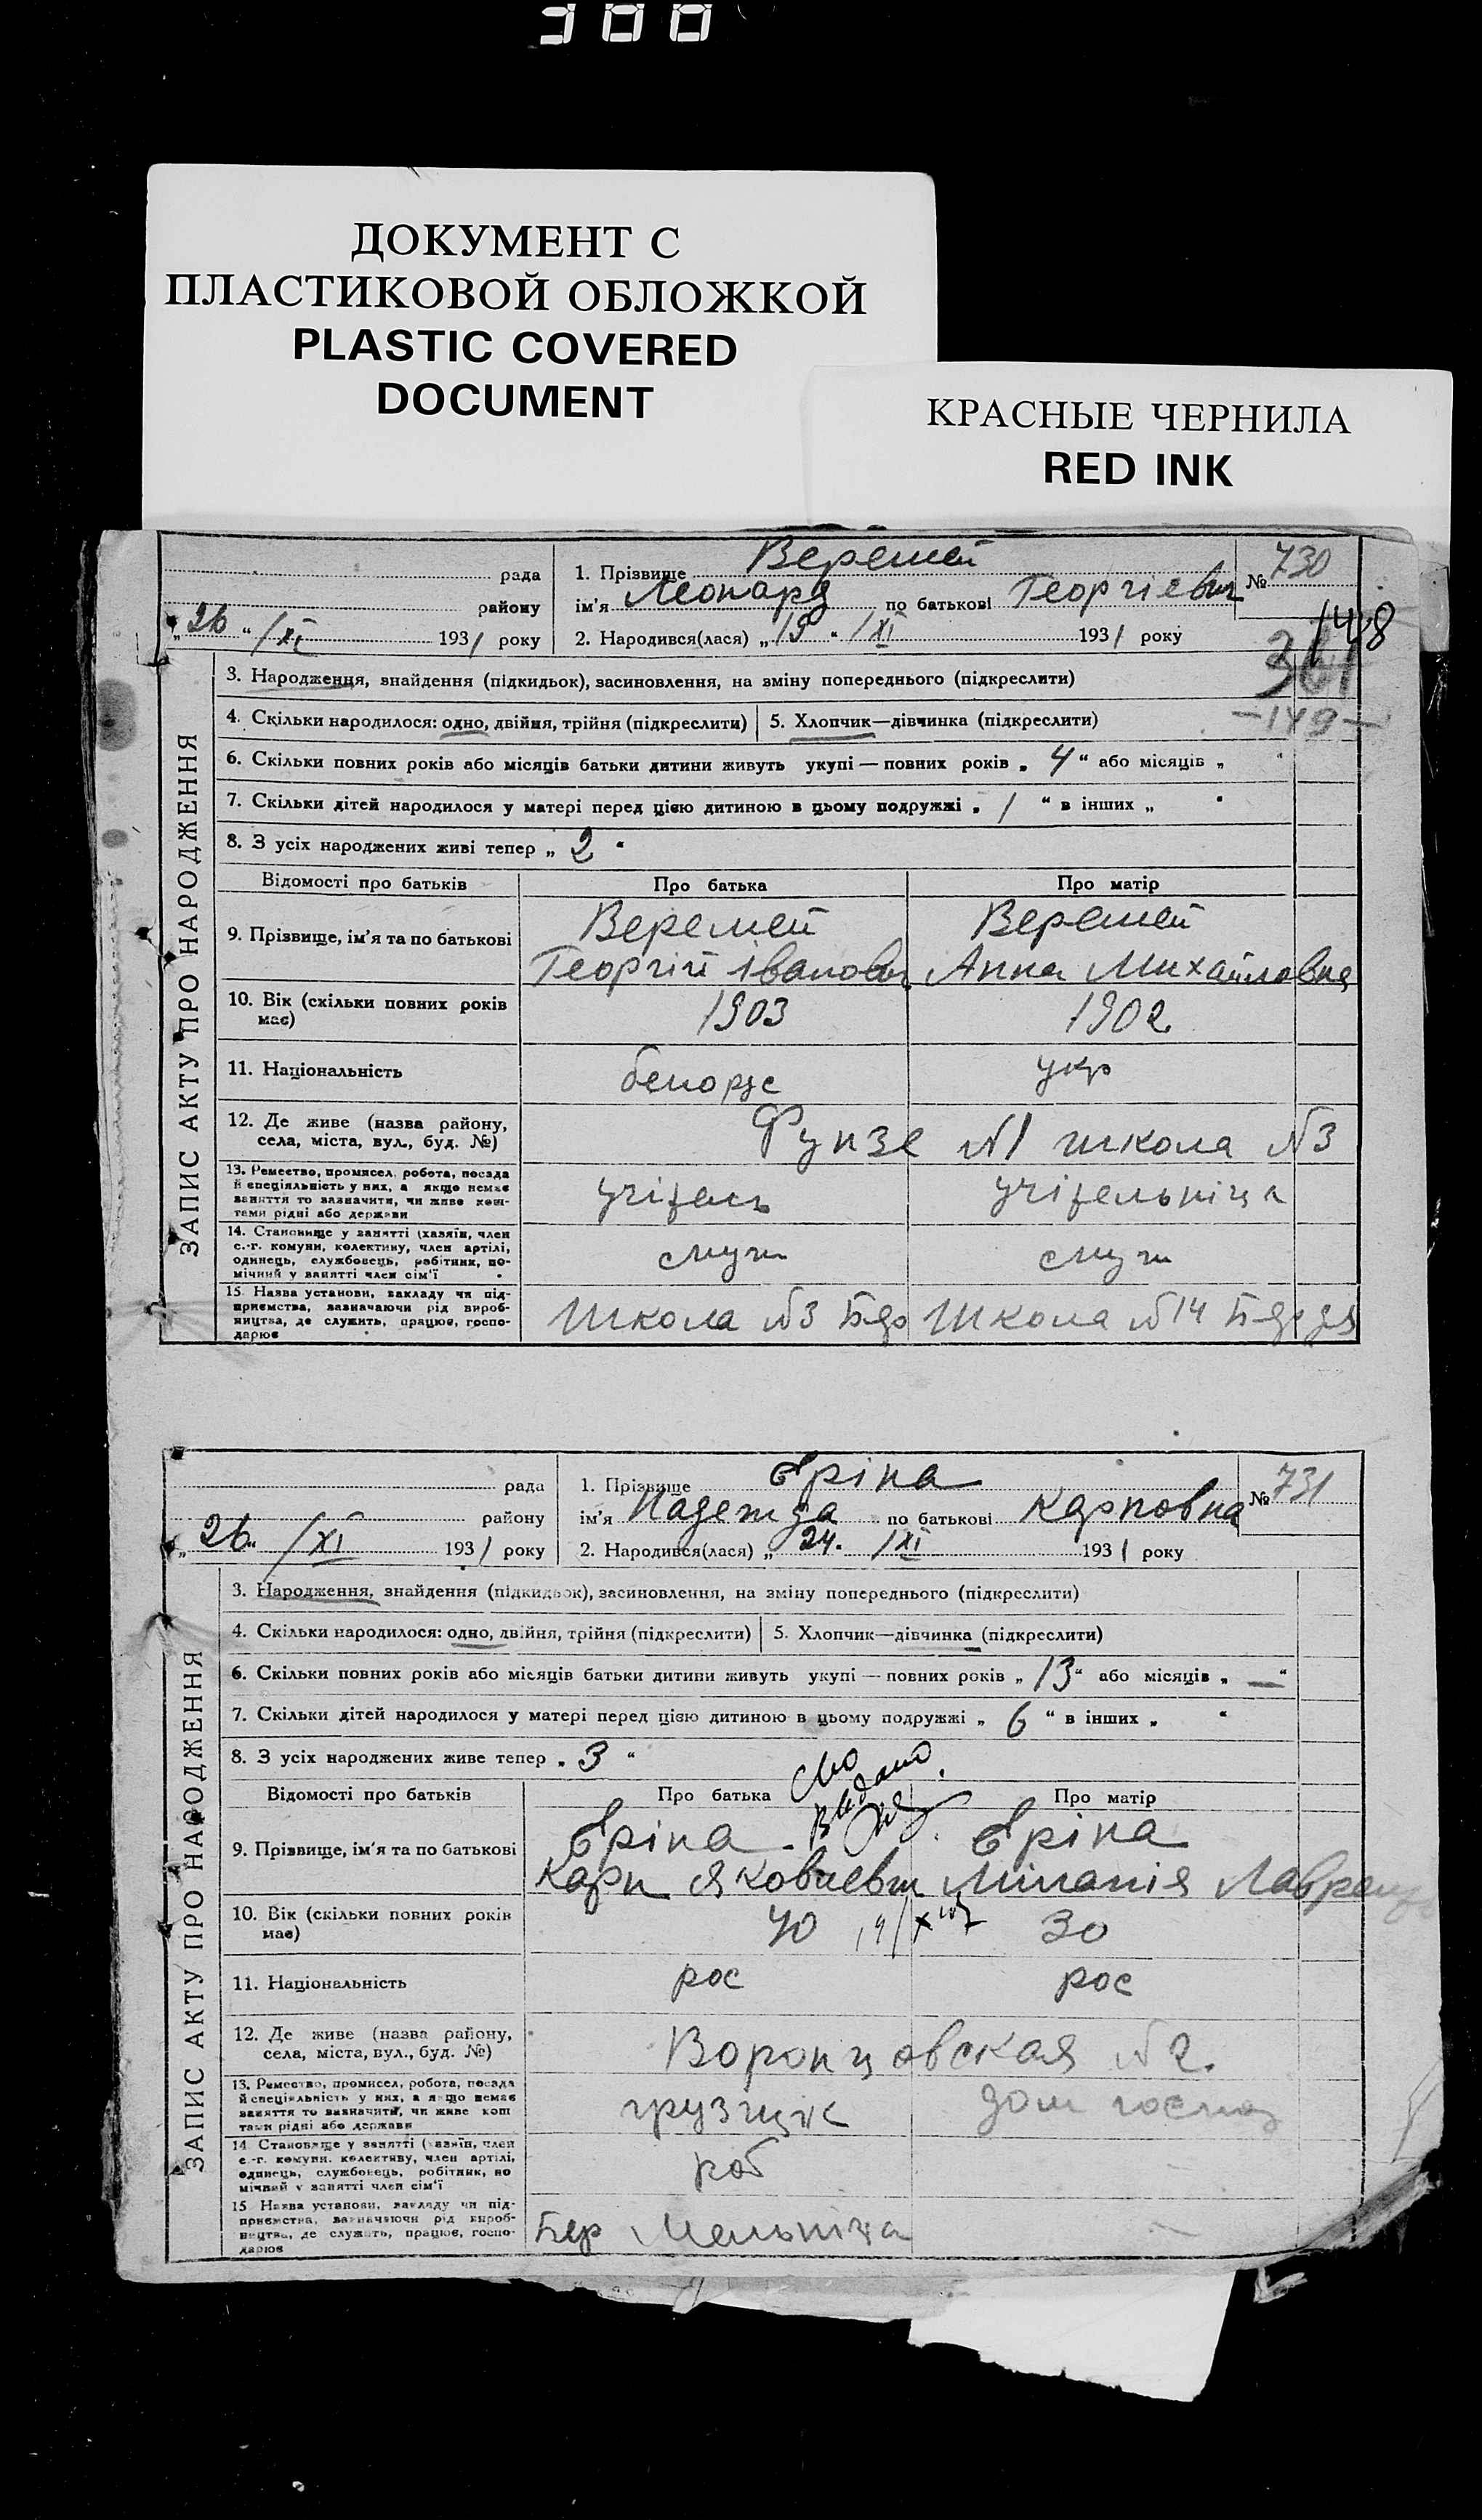 300
ДОКУМЕНТ С
ПЛАСТИКОВОЙ ОБЛОЖКОЙ
PLASTIC COVERED
DOCUMENT
КРАСНЫЕ ЧЕРНИЛА
RED INK
ЗАПИС АКТУ ПРО НАРОДЖЕННЯ
рада
району
„26“ /XI 1931 року
1. Прізвище Веремей
№ 730
ім'я Леонард по батькові Георгіевич
2. Народився(лася) „19“ /XI 1931 року
148
3. Народження, знайдення (підкидьок), засиновлення, на зміну попереднього (підкреслити)
4. Скільки народилося: одно, двійня, трійня (підкреслити)
5. Хлопчик—дівчинка (підкреслити)
—149—
6. Скільки повних років або місяців батьки дитини живуть укупі — повних років „4“ або місяців „ “
7. Скільки дітей народилося у матері перед цією дитиною в цьому подружжі „1“ в інших „ “
8. З усіх народжених живі тепер „2“
Відомості про батьків
Про батька
Про матір
9. Прізвище, ім'я та по батькові
Веремей
Георгій Іванович
Веремей
Анна Михайловна
10. Вік (скільки повних років має)
1903
1902
11. Національність
белорус
укр
12. Де живе (назва району, села, міста, вул., буд. №)
Фунзе №1 школа №3
13. Ремество, промисел, робота, посада й спеціяльність у них, а якщо немає заняття то зазначити, чи живе коштами рідні або держави
учітель
учітельніца
14. Становище у занятті (хазяїн, член с.-г. комуни, колективу, член артілі, одинець, службовець, робітник, помічний у занятті член сім'ї
служ
служ
15. Назва установи, закладу чи підприємства, зазначаючи рід виробництва, де служить, працює, господарює
Школа №3
Школа №14
ЗАПИС АКТУ ПРО НАРОДЖЕННЯ
рада
району
„26“ /XI 1931 року
1. Прізвище Єріна
№ 731
ім'я Надежда по батькові Карповна
2. Народився(лася) „24. /XI 1931 року
3. Народження, знайдення (підкидьок), засиновлення, на зміну попереднього (підкреслити)
4. Скільки народилося: одно, двійня, трійня (підкреслити)
5. Хлопчик—дівчинка (підкреслити)
6. Скільки повних років або місяців батьки дитини живуть укупі — повних років „13“ або місяців „—“
7. Скільки дітей народилося у матері перед цією дитиною в цьому подружжі „6“ в інших „ “
8. З усіх народжених живе тепер „3“
Відомості про батьків
Про батька
Про матір
Выдано
9. Прізвище, ім'я та по батькові
Єріна
Карп Яковлевич
Єріна
Міланія Лаврен
10. Вік (скільки повних років має)
40
30
11. Національність
рос
рос
12. Де живе (назва району, села, міста, вул., буд. №)
Воронцовская №2.
13. Ремество, промисел, робота, посада й спеціяльність у них, а якщо немає заняття то зазначити, чи живе коштами рідні або держави
грузщик
дом господ
14. Становище у занятті (хазяїн, член с.-г. комуни, колективу, член артілі, одинець, службовець, робітник, помічний у занятті член сім'ї
роб
15. Назва установи, закладу чи підприємства, зазначаючи рід виробництва, де служить, працює, господарює
Мельніца